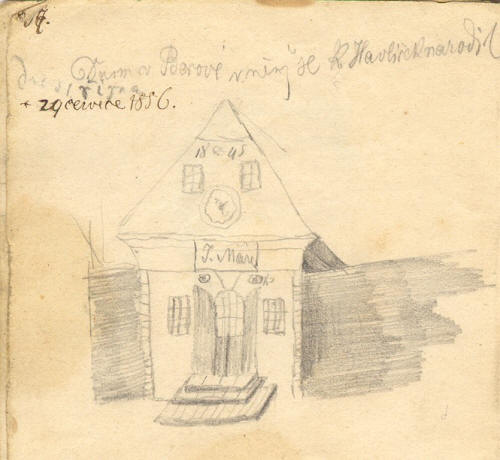 Dům v Borové v němž se K Havlíček narodil
dne 31 října
+ 29 července 1856.
18 45
J. Mare